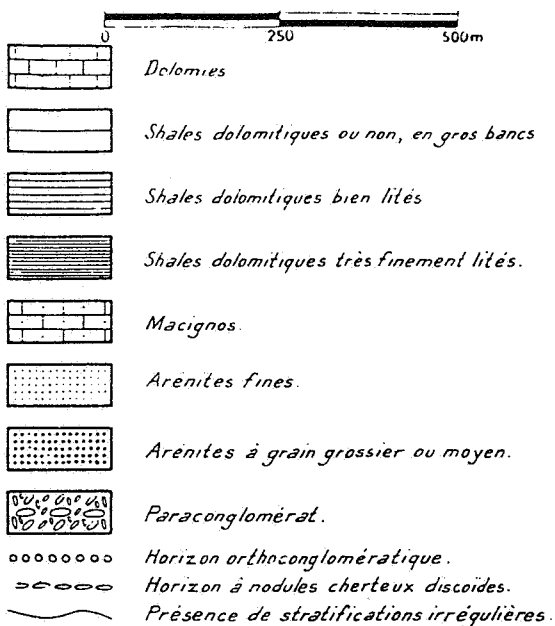 0 250 500m
Dolomies
Shales dolomitiques ou non, en gros bancs
Shales dolomitiques bien lités
Shales dolomitiques très finement lités.
Macignos.
Arénites fines.
Arénites à grain grossier ou moyen.
Paraconglomérat.
Horizon orthoconglomératique.
Horizon à nodules cherteux discoïdes.
Présence de stratifications irrégulières.